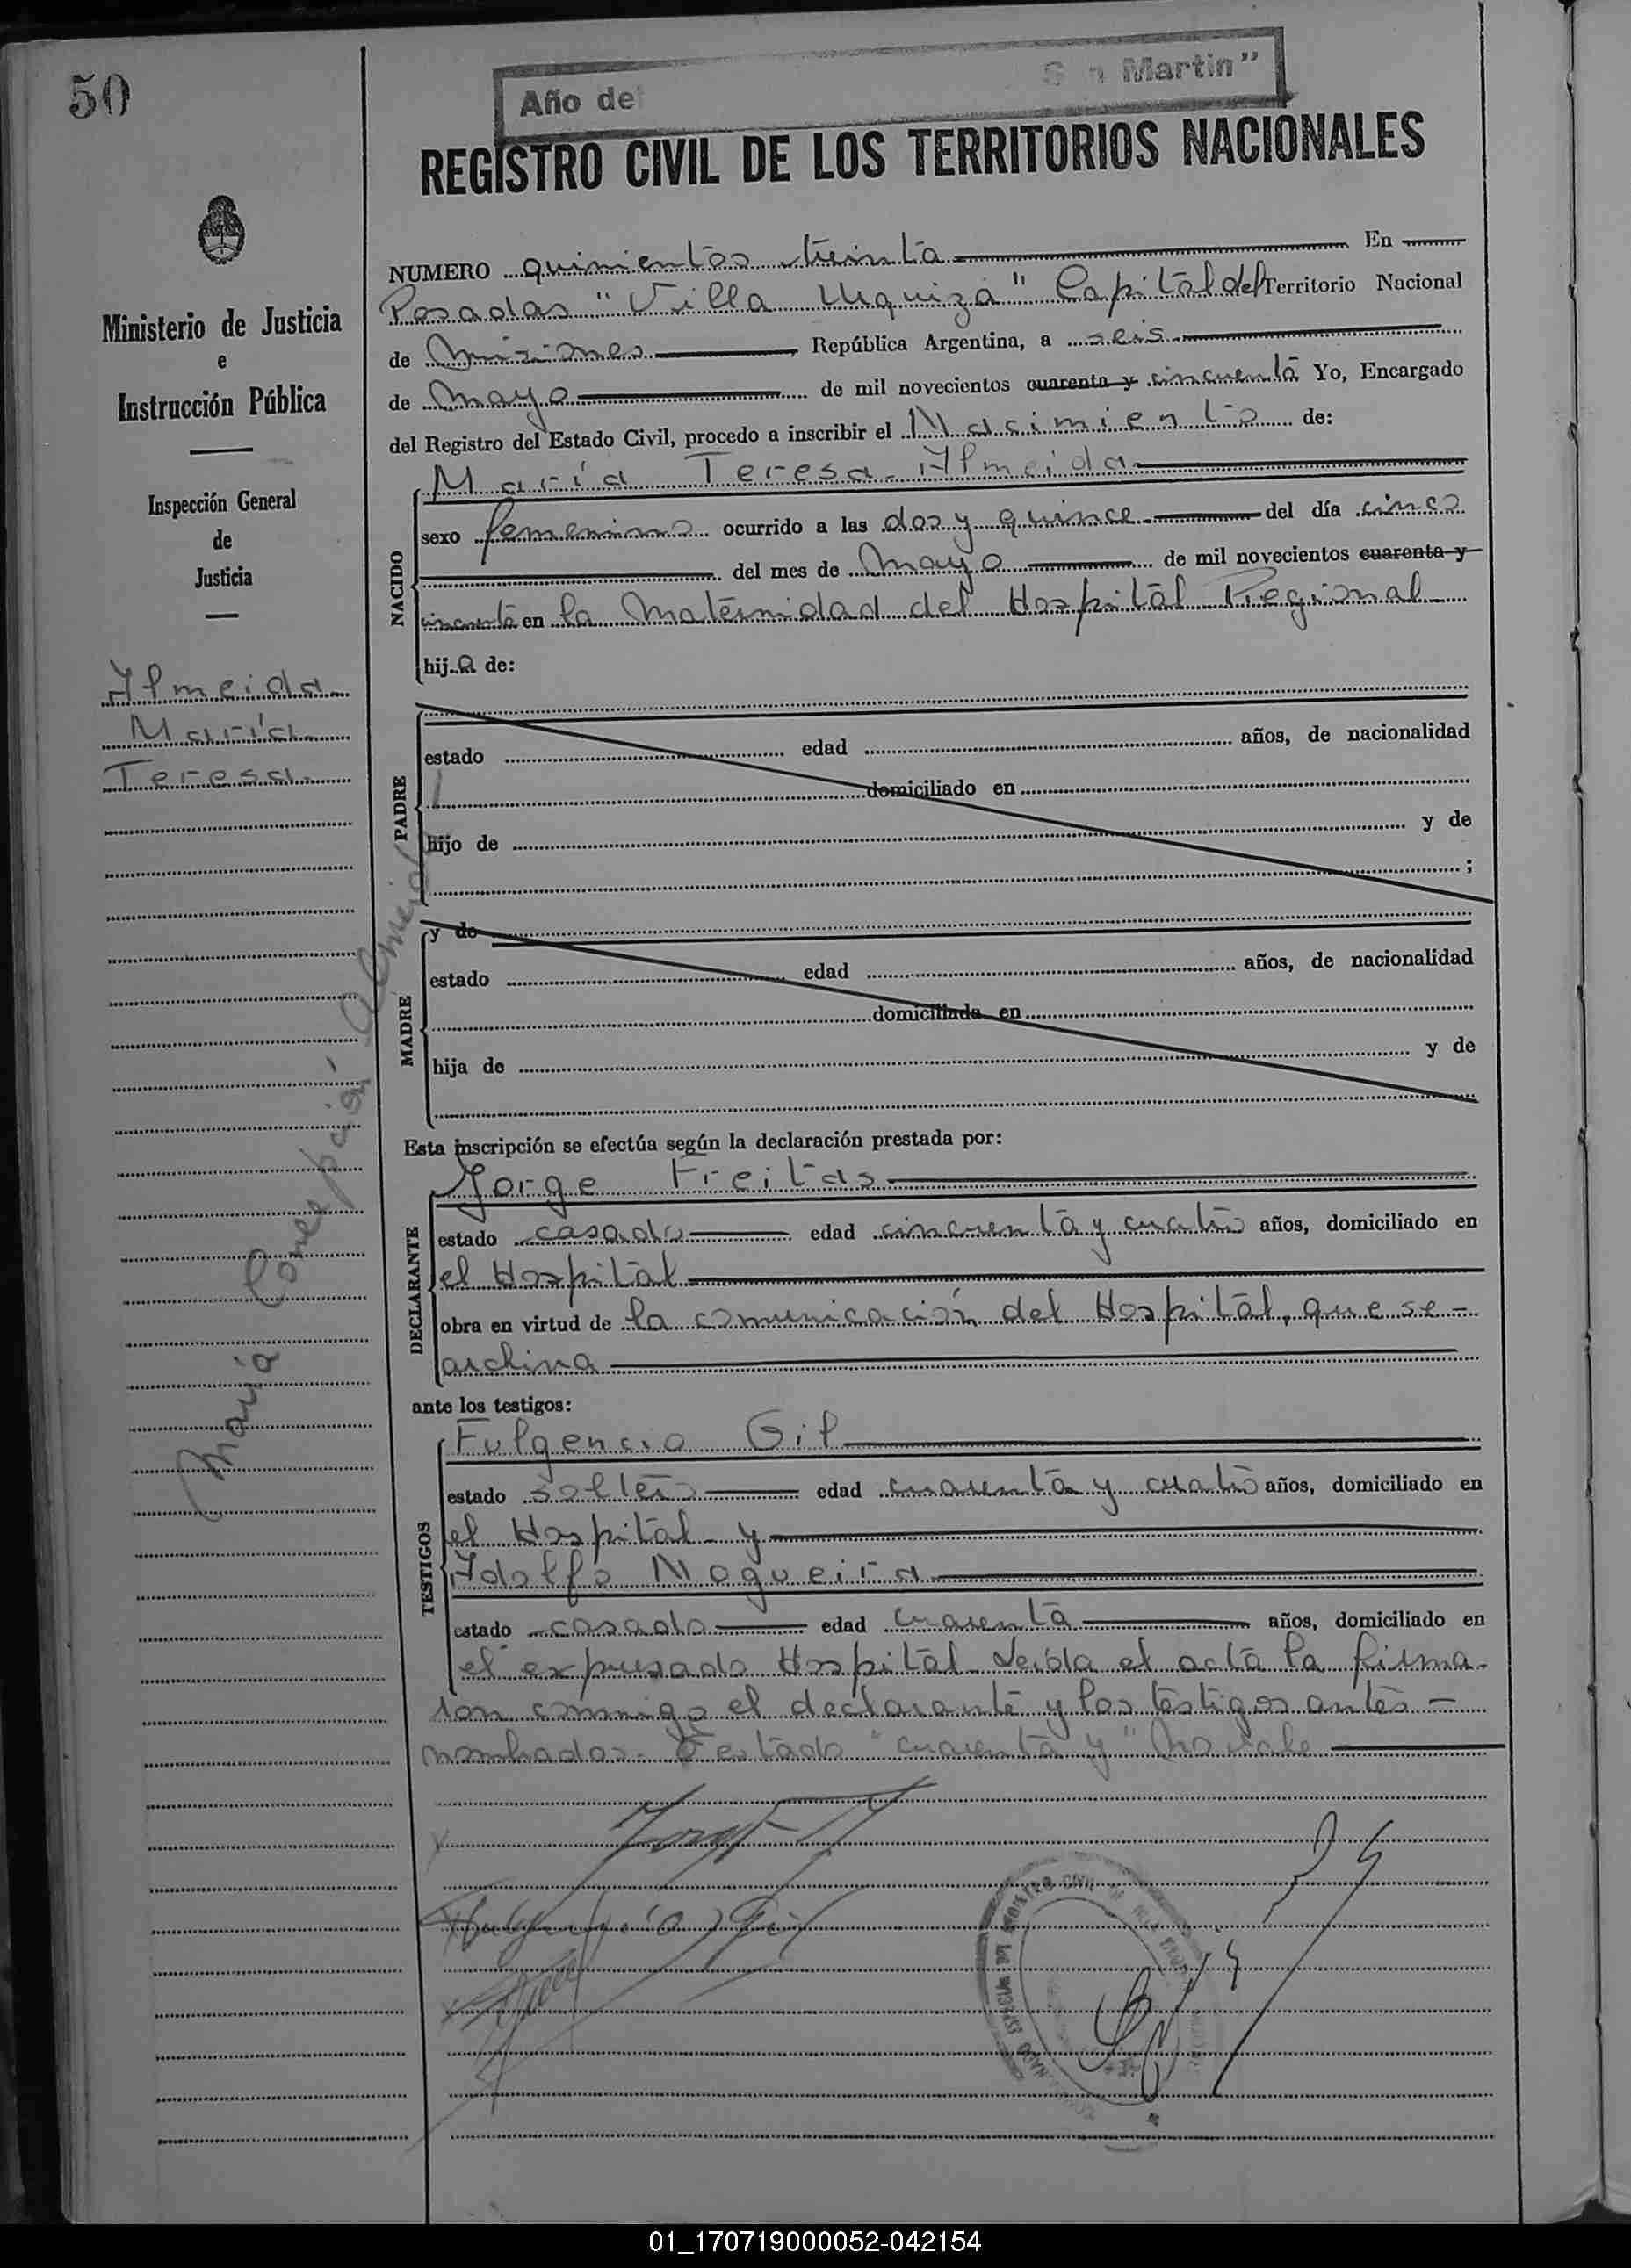 50
Año del
San Martin"
REGISTRO CIVIL DE LOS TERRITORIOS NACIONALES
Ministerio de Justicia
e
Instrucción Pública
Inspección General
de
Justicia
Almeida
María
Teresa
María Concepción Almeida
NUMERO quinientos treinta En
Posadas "Villa Urquiza" Capital del Territorio Nacional
de Misiones República Argentina, a seis
de Mayo de mil novecientos cuarenta y cincuenta Yo, Encargado
del Registro del Estado Civil, procedo a inscribir el Nacimiento de:
NACIDO
María Teresa Almeida
sexo femenino ocurrido a las dos y quince del día cinco
del mes de Mayo de mil novecientos cuarenta y
cincuenta en la Maternidad del Hospital Regional
hija de:
PADRE
estado edad años, de nacionalidad
domiciliado en
hijo de y de
;
MADRE
y de
estado edad años, de nacionalidad
domiciliada en
hija de y de
Esta inscripción se efectúa según la declaración prestada por:
DECLARANTE
Jorge Freitas
estado casado edad cincuenta y cuatro años, domiciliado en
el Hospital
obra en virtud de la comunicación del Hospital, que se
archiva
ante los testigos:
TESTIGOS
Fulgencio Gil
estado soltero edad cuarenta y cuatro años, domiciliado en
el Hospital y
Adolfo Nogueira
estado casado edad cuarenta años, domiciliado en
el expresado Hospital Leída el acta la firma-
ron conmigo el declarante y los testigos antes
nombrados. Testado "cuarenta y" No vale
Fulgencio Gil
REGISTRO CIVIL
01_170719000052-042154